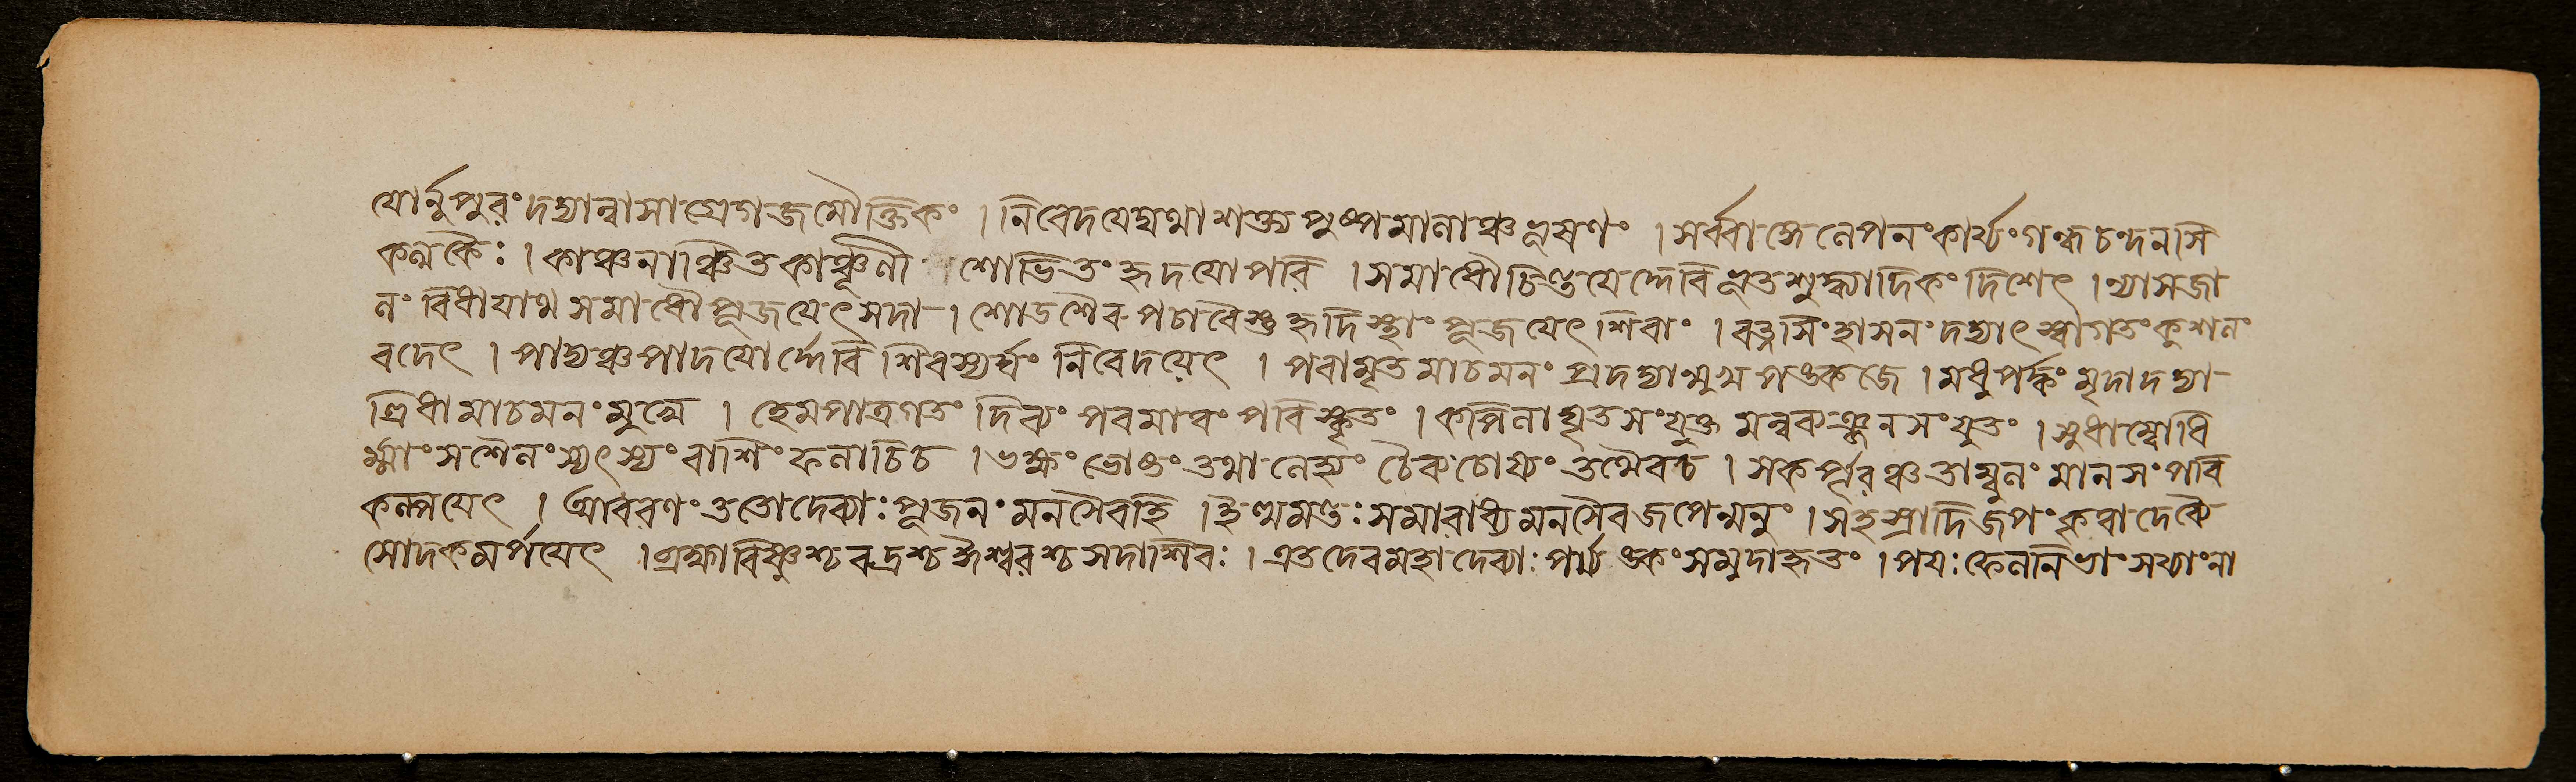 যোর্নুপুরং দদ্যান্নাসাগ্রেগজমৌক্তিকং । নিবেদয়েদ্যথাশক্ত্য পুষ্পমানাঞ্চ ভূষণং । সর্ব্বাঙ্গেলেপনং কার্য্যং গন্ধচন্দনসি
কল্পকৈঃ । কাঞ্চনাঞ্চিতকাঞ্চূণী শোভিতং হৃদযোপরি । সমাধৌচিণ্তয়েদ্দেবি ভূতশুদ্ধ্যাদিকং দিশেৎ । ণ্যাসজা
নং বিধাযাথ সমাধৌপূজয়েৎসদা । শোডশৈৰ পচাৰৈস্তু হৃদিস্থাং পূজয়েৎ শিবাং । ৰত্নসিংহাসনং দদ্যাৎ স্বাগতং কুশলং
বদেৎ । পাদ্যঞ্চপাদয়োর্দ্দেবি শিৰস্যর্ঘ্যং নিবেদয়েৎ । পৰামৃতমাচমনং প্রদদ্যান্মুখপঙকজে । মধুপর্ক্কং মৃদাদদ্যা
ত্ত্রিধামাচমনংমুখে । হেমপাত্রগতং দিব্যং পৰমান্নং পৰিস্কৃতং । কপিলাঘৃতসংযুক্তমন্নব্যঞ্জনসংযুতং । সুধাম্বোধি
র্ম্মাংসশৈলং মৎস্যং ৰাশিং ফলাচিচ । ভক্ষ্যং ভোজ্যং তথা লেহ্যং চৈব চোষ্যং তথৈবচ । সকর্পূরঞ্চতাম্বুলং মানসং পৰি
কল্পয়েৎ । আবৰণং ততোদেব্যাঃ পূজনং মনসৈবহি । ইণ্থমণ্তঃ সমারাধ্য মনসৈবজপেন্মনুং । সহস্রাদিজপং কৃত্বাদেব্যৈ
সোদকমর্পয়েৎ । ব্রহ্মাবিষ্ণুশ্চৰুদ্রশ্চ ঈশ্বরশ্চ সদাশিবঃ । এতদেবমহাদেব্যাঃ পর্য্যঙকং সমুদাহৃতং । পযঃ ফেণনিভাং সয্যাংনা